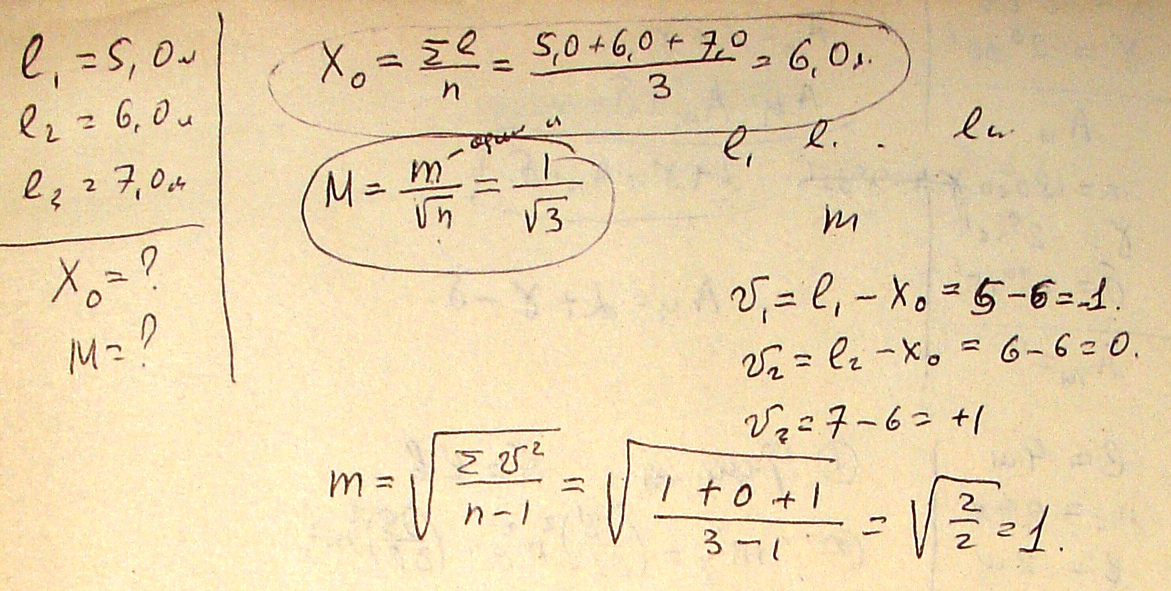 l₁ = 5,0 м
l₂ = 6,0 м
l₃ = 7,0 м
X₀ = ?
M = ?
X₀ = Σl/n = (5,0 + 6,0 + 7,0)/3 = 6,0 м.
M = m/√n = 1/√3
l₁ l. . lₙ
m
v₁ = l₁ − X₀ = 5 − 6 = -1.
v₂ = l₂ − X₀ = 6 − 6 = 0.
v₃ = 7 − 6 = +1
m = √(Σv²/(n−1)) = √((1 + 0 + 1)/(3−1)) = √(2/2) = 1.